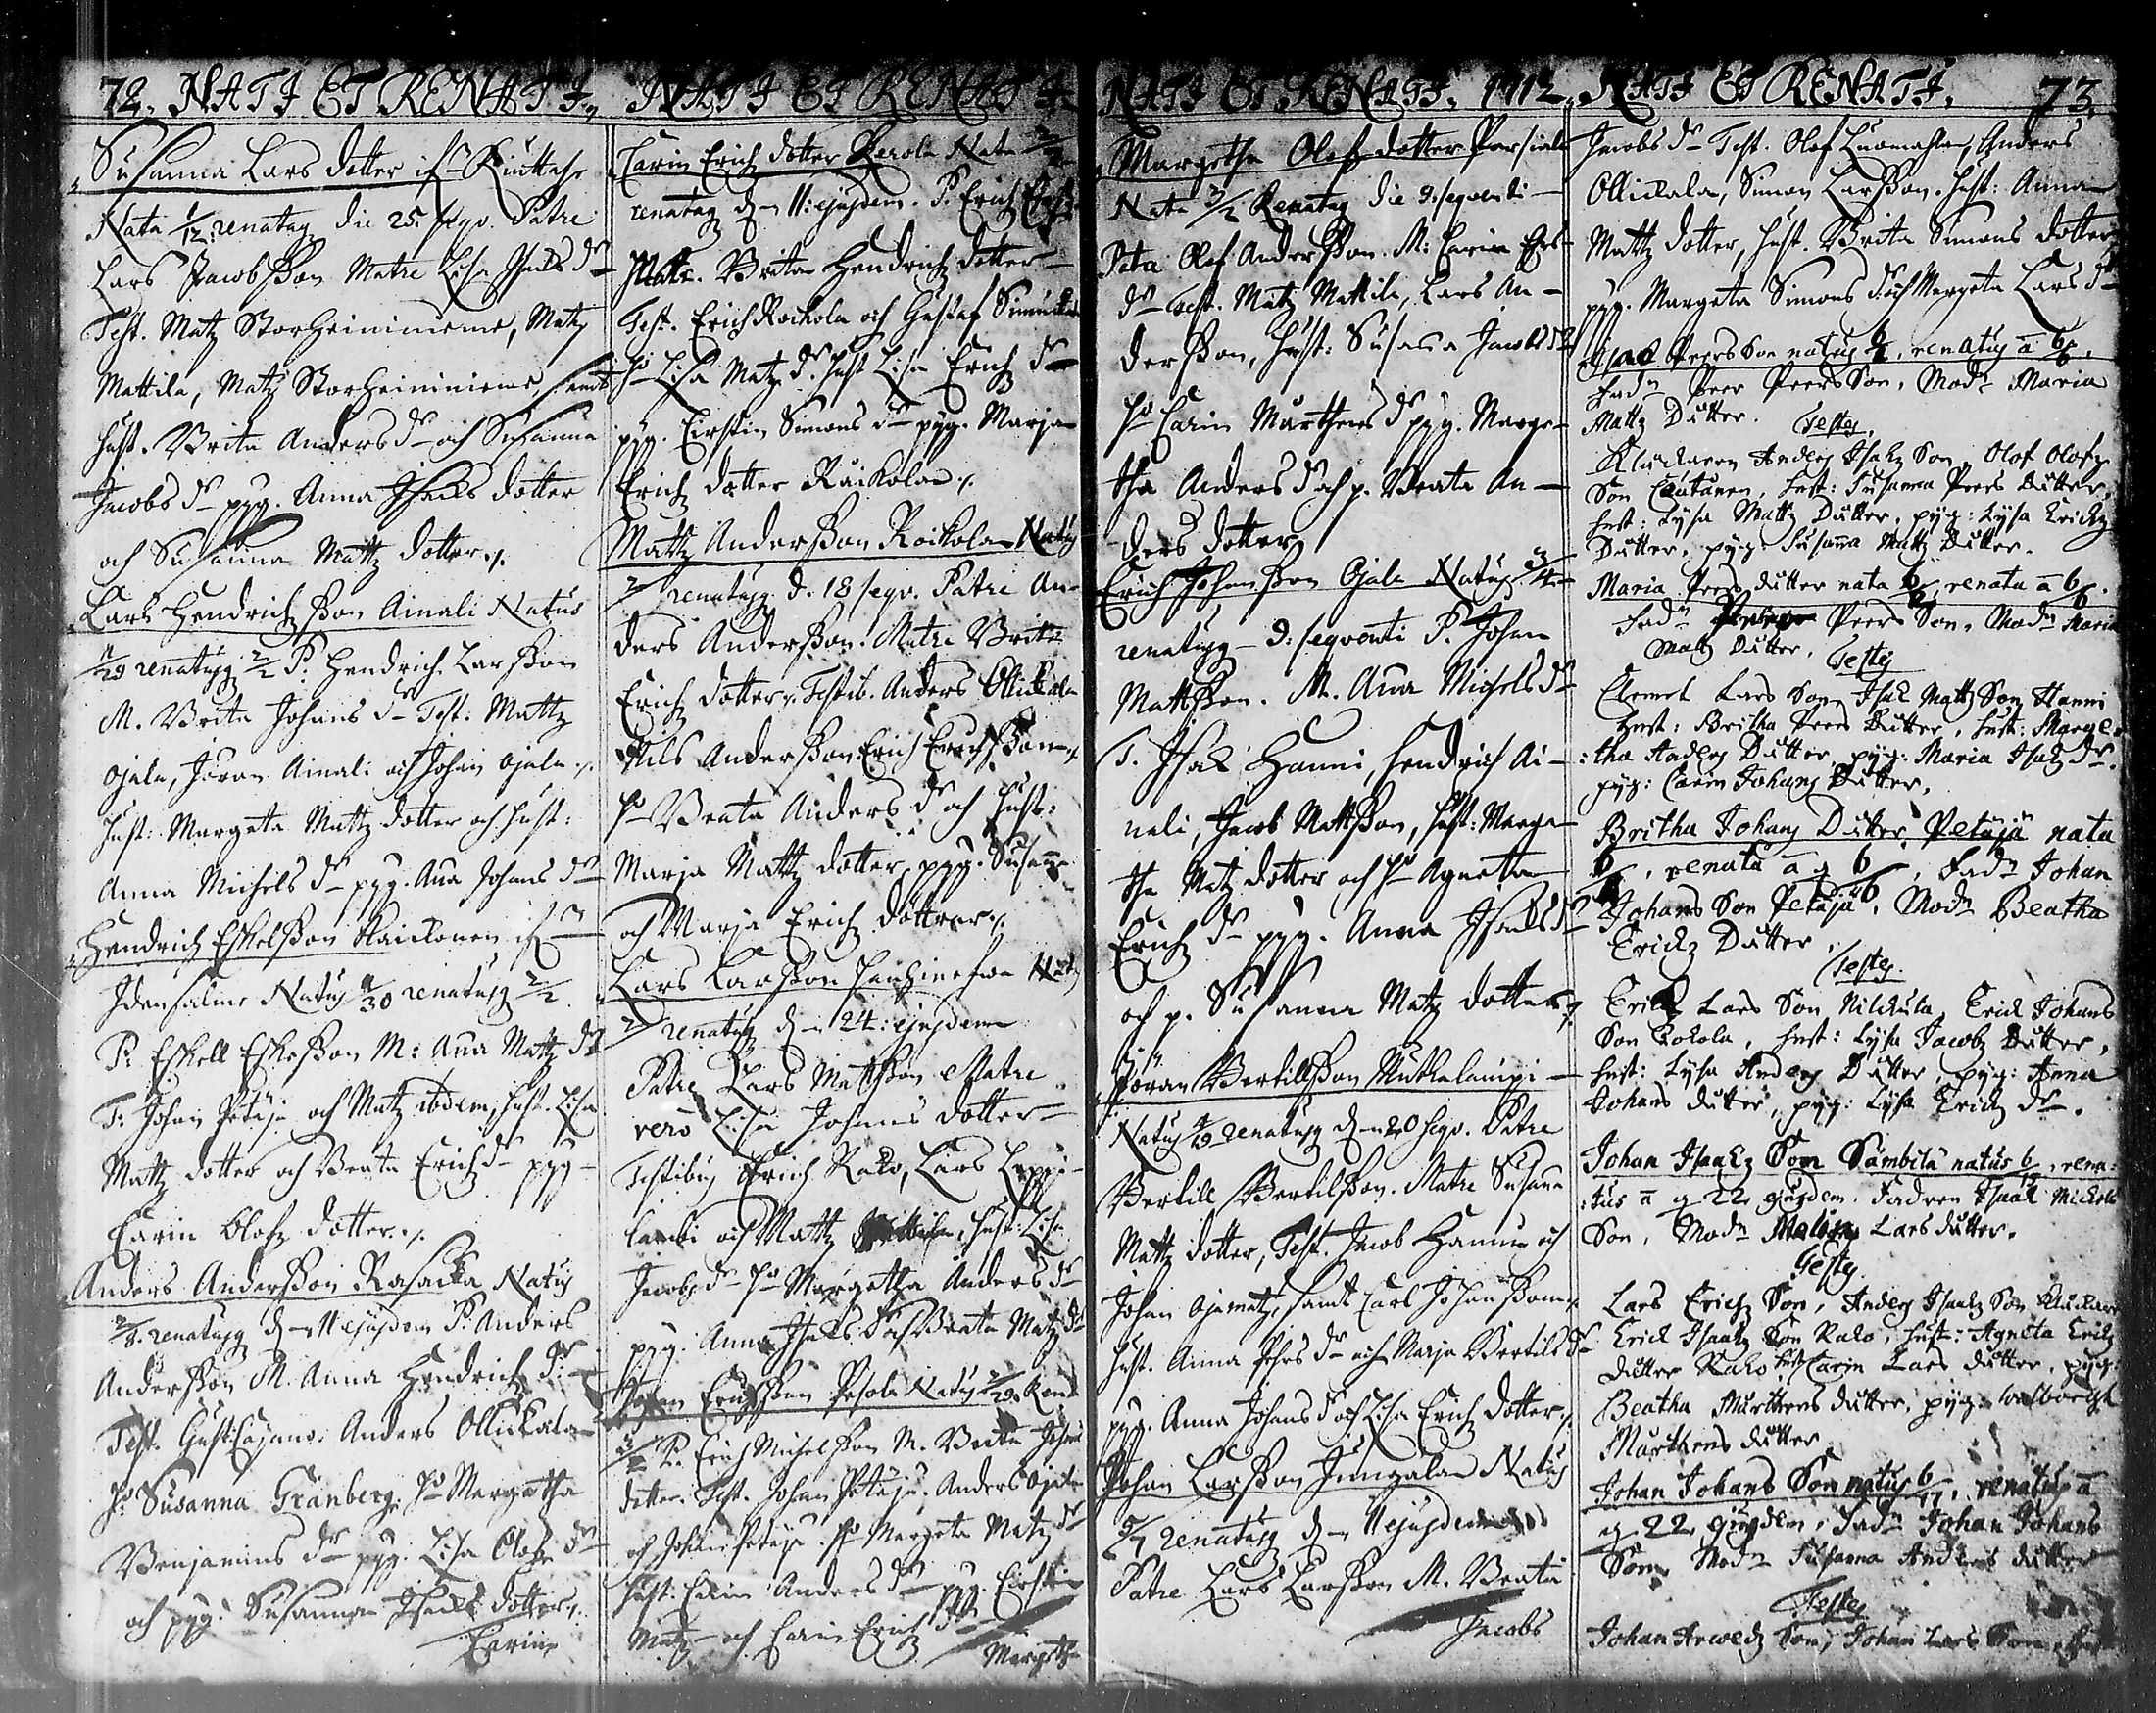 72. NATI ET RENATI.
Susanna Lars dotter if
Nata 1/12. renatag die 25. seqv. Patre
Lars Jacobsson Matre Lisa Isacs dr
Test. Matz Storheinineme, Matz
Mattila, Matz Storheinineme, samt
hust. Brita Anders dr och Susanna
Jacobs dr pyg. Anna Isacks dotter
och Susanna Mattz dotter ./.
Lars Hendrichsson Ainali Natus
/29 renatusg 2/2 P. Hendrich Larsson
M. Brita Johans dr Test: Mattz
Ojala, Jöran Ainali och Johan Ojala ./.
hust: Margeta Mattz dotter och hust:
Anna Michels dr pyg. Ana Johans dr
Hendrich Eskelsson Kaickonen if
Idensalmi Natus /30 renatusg 2/2.
P. Eskell Eskesson M: Ana Mattz dr
T: Johan Petäja och Matz ibdem, hust. Lisa
Mattz dotter och Beata Erich dr pyg
Carin Olofz dotter ./.
Anders Andersson Rasacka Natus
2/8. renatusg d. 11 ejusdem P. Anders
Andersson M. Anna Hendrich dr
Test. Gust: Cajanus Anders Ollickala
Susanna Granberg. Margetha
Benjamins dr pyg. Lisa Olofz dr
och pyg. Susanna Isacks dotter ./.
Carin
NATI ET RENATI
Carin Erich dotter Nata 2/
renatag d. 11: ejusdem. P. Erich
Matr. Brita Hendrich dotter
Test. Erich Rockola och Gustaf
Lisa Matz dr. hust Lisa Erich dr
pyg. Cirstin Simons dr pyg. Marja
Erich dotter Raikola ./.
Mattz Andersson Rockola Natus
2/ renatusg d. 18 seqv. Patre An-
ders Andersson. Matre Brita
Erich dotter. Testib. Anders Ollickala
Nils Andersson Erich Erichsson ./.
Beata Anders dr och hust:
Marja Mattz dotter, pyg. Susanna
och Marja Erich döttrar ./.
Lars Larsson Natus
2/ renatusg d. 24: ejusdem
Patre Lars Mattsson Matre
vero Lisa Johans dotter
Testibus Erich Rako, Lars Leppi-
lambi och Mattz Mattila, hust: Lisa
Jacobs dr Margetha Anders dr
pyg. Anna Isacks dr och Beata Matz dr
Erichsson Pesola Natus 2/29. Rena
3/ P. Erich Michelsson M. Brita Johans
dotter. Test. Johan Petäja. Anders Ojala
och Johan Petäja. Margeta Matz dr
hust: Carin Anders dr pyg. Cirstin
Matz och Carin Erich dr
Margetha
NATI ET RENATI. 1712.
Margetha Olof dotter Parsiala
Nata 3/2 Renatag die 9. seqventi
Pata Olof Andersson. M: Carin
dr Test. Matz Mattila, Lars An-
dersson, hust: Susana Jacobs dr
Carin Marthens dr pyg. Marge-
tha Anders dr och p. Beata An-
ders dotter
Erich Johansson Ojala Natus 3/4
renatusg 9: seqventi P. Johan
Mattsson. M. Ana Michels dr
T. Isac Hanni, Hendrich Ai-
nali, Jacob Mattsson, hust: Marge-
tha Matz dotter och Agneta
Erich dr pyg. Anna Isacks dr
och p. Susanna Matz dotter ./.
Jöran Bertillsson Muthalampi
Natus 4/19 renatusg d. 20 seqv. Patre
Bertill Bertilsson. Matre Susana
Mattz dotter, Test. Jacob Hannu och
Johan Ojamatz, samt Lars Johansson ./.
hust. Anna Pehrs dr och Marja Bertils dr
pyg. Anna Johans dr och Lisa Erich dotter ./.
Johan Larsson Jungala Natus
5/7 renatusg d. 11 ejusdem
Patre Lars Larsson M. Beata
Jacobs
NATI ET RENATI. 73.
Jacobs dr Test. Olof Luomahla, Anders
Ollickala, Simon Larsson. hust: Anna
Mattz dotter, hust. Brita Simons dotter
pyg. Margeta Simons dr och Margeta Lars dr
Isac Peersson natus , renatus a 6/8.
Fadn Peer Peersson, Modn Maria
Mattz Dutter. Testes.
Kluckaren Anders Isacz Son, Olof Olofz
Son Cautanen, hust: Susanna Peers Dutter,
hust: Lysa Mattz Dutter, pyg: Lysa Erickz
Dutter, pyg: Susanna Mattz Dutter.
Maria Peers dutter nata 6/ renata a 6/8.
Fadn Peers Son, Modn Maria
Mattz Dutter. Testes
Clemet Lars Son, Isac Mattz Son Hanni
hust: Britha Peers Dutter, hust: Marge-
:tha Anders Dutter, pyg: Maria Isacz dr.
pyg: Carin Johans Dutter.
Britha Johans Dutter Petäjä nata
6/, renata a q 6/, Fadn Johan
Johans Son Petäjä, Modn Beatha
Erickz Dutter.
Testes.
Erick Lars Son Nickula, Erick Johans
Son Kokola, hust: Lysa Jacobz Dutter,
hust: Lysa Anders Dutter, pyg: Anna
Johans dutter, pyg: Lysa Erickz dr.
Johan Isaakz Son Sämbilä natus 6/, rena:
:tus a q 22 ejusdem. Fadren Isaak Mickels
Son, Modn Malin Lars dutter.
Testes
Lars Erickz Son, Anders Isaakz Son Kluckare
Erick Isaakz Son Rako, hust: Agneta Erickz
dutter Rako hust Carin Lars dutter, pyg:
Beatha Marthens dutter, pyg: Walborgh
Marthens dutter.
Johan Johans Son natus 6/17. renatus a
q 22 ejusdem. Fadn Johan Johans
Son Modn Susanna Anders dutter
Testes
Johan Arwedz Son, Johan Lars Son,